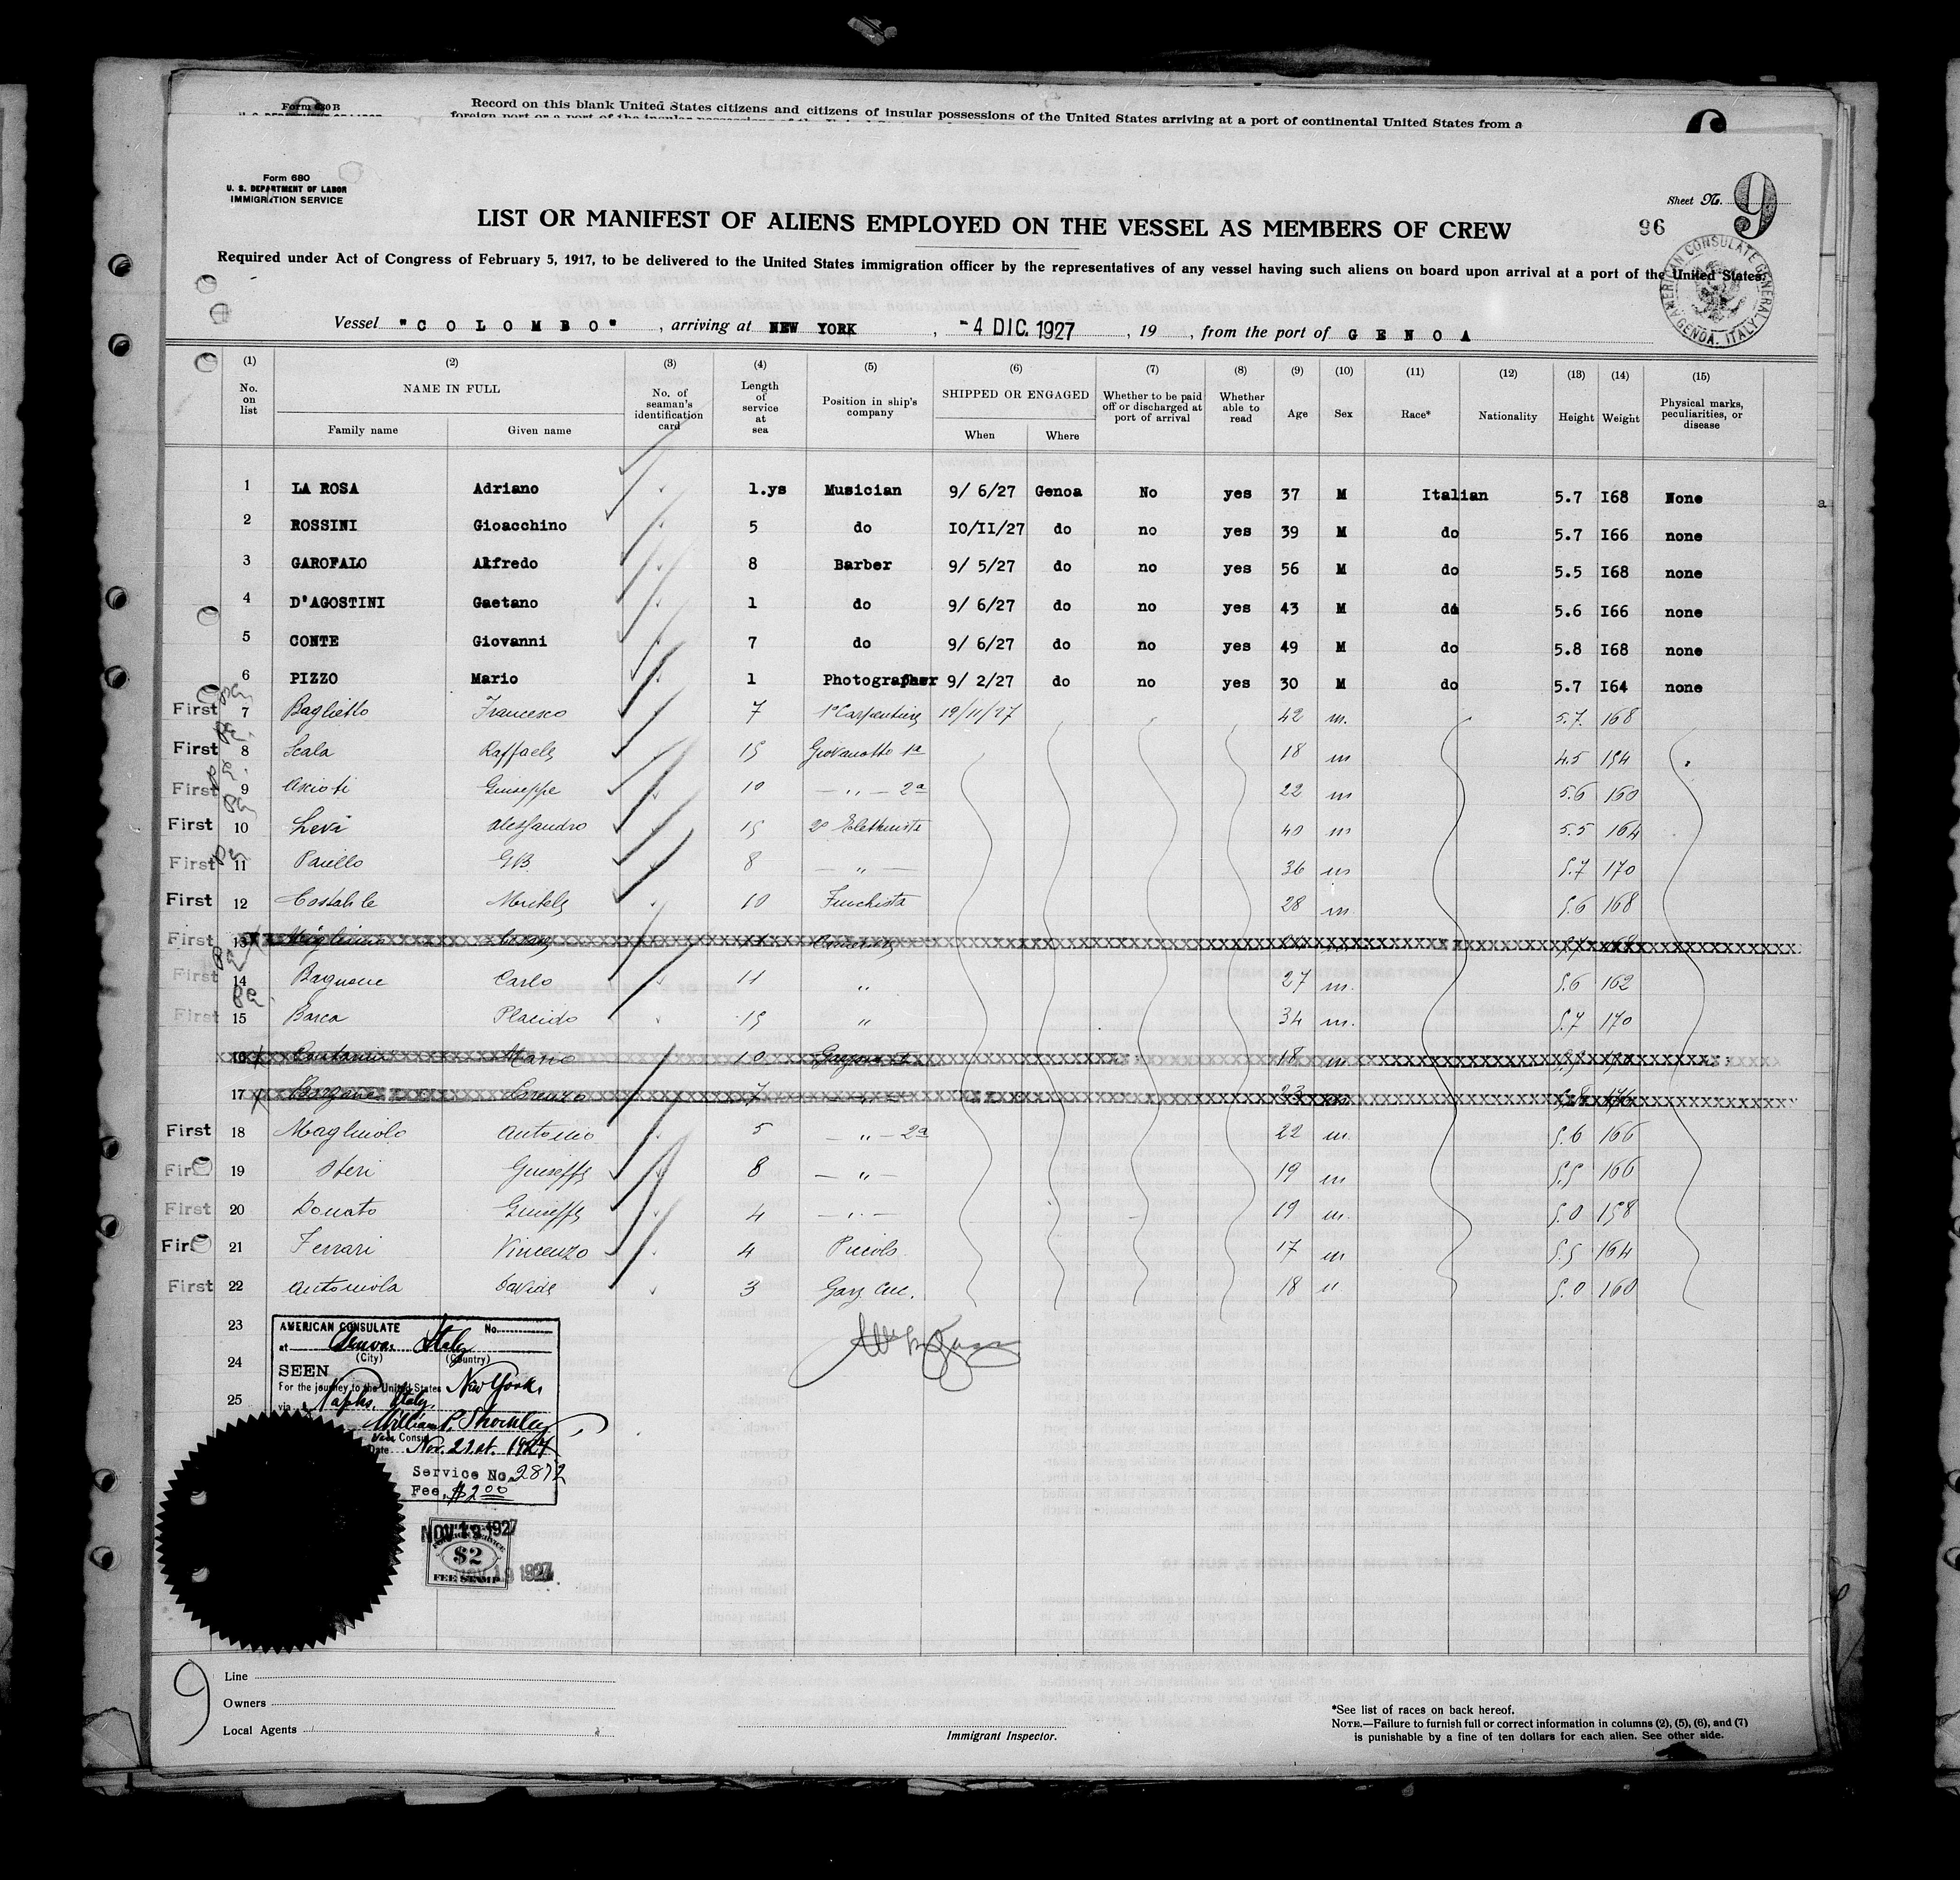 Form 630 B
Record on this blank United States citizens and citizens of insular possessions of the United States arriving at a port of continental United States from a
Form 680
U. S. DEPARTMENT OF LABOR
IMMIGRATION SERVICE
Sheet No. 9
96
LIST OR MANIFEST OF ALIENS EMPLOYED ON THE VESSEL AS MEMBERS OF CREW
Required under Act of Congress of February 5, 1917, to be delivered to the United States immigration officer by the representatives of any vessel having such aliens on board upon arrival at a port of the United States.
AMERICAN CONSULATE GENERAL GENOA, ITALY
Vessel "COLOMBO", arriving at NEW YORK, -4 DIC. 1927, 19 , from the port of GENOA
(1) (2) (3) (4) (5) (6) (7) (8) (9) (10) (11) (12) (13) (14) (15)
No. on list NAME IN FULL No. of seaman's identification card Length of service at sea Position in ship's company SHIPPED OR ENGAGED Whether to be paid off or discharged at port of arrival Whether able to read Age Sex Race* Nationality Height Weight Physical marks, peculiarities, or disease
Family name Given name When Where
1 LA ROSA Adriano 1.ys Musician 9/ 6/27 Genoa No yes 37 M Italian 5.7 I68 None
2 ROSSINI Gioacchino 5 do IO/II/27 do no yes 39 M do 5.7 I66 none
3 GAROFALO Alfredo 8 Barber 9/ 5/27 do no yes 56 M do 5.5 I68 none
4 D'AGOSTINI Gaetano 1 do 9/ 6/27 do no yes 43 M do 5.6 I66 none
5 CONTE Giovanni 7 do 9/ 6/27 do no yes 49 M do 5.8 I68 none
6 PIZZO Mario 1 Photographer 9/ 2/27 do no yes 30 M do 5.7 I64 none
First 7 Baglietto Francesco 7 1° Carpentiere 19/11/27 42 m. 5.7 168
First 8 Scala Raffaele 15 Giovanotto 1a 18 m 4.5 154
First 9 Giuseppe 10 — " — 2a 22 m 5.6 160
First 10 Levi Alessandro 15 2° 40 m 5.5 164
First 11 Paiello G.B. 8 — " — 36 m 5.7 170
First 12 Costabile 10 Fuochista 28 m 5.6 168
First 13
First 14 Bagnone Carlo 11 " 27 m. 5.6 162
First 15 Barca Placido 15 " 34 m. 5.7 170
16 Mario 10 18 m
17 Lorenzo 7 — " — 23 m
First 18 Magliuolo Antonio 5 — " — 2a 22 m. 5.6 166
First 19 Steri Giuseppe 8 — " — 19 m 5.5 166
First 20 Donato Giuseppe 4 — " — 19 m. 5.0 158
First 21 Ferrari Vincenzo 4 Piccolo 17 m 5.5 164
First 22 Antomola Davide 3 Garz. cuc. 18 " 5.0 160
23
24
25
AMERICAN CONSULATE No.
at Genoa Italy
(City) (Country)
SEEN
For the journey to the United States New York,
via Naples, Italy.
William P. Shockley
Vice Consul
Date Nov. 21st. 1927
Service No. 2872
Fee, $2 00
NOV 19 1927
$2
FEE STAMP
NOV 19 1927
9
Line
Owners
Local Agents
Immigrant Inspector.
*See list of races on back hereof.
NOTE.—Failure to furnish full or correct information in columns (2), (5), (6), and (7)
is punishable by a fine of ten dollars for each alien. See other side.